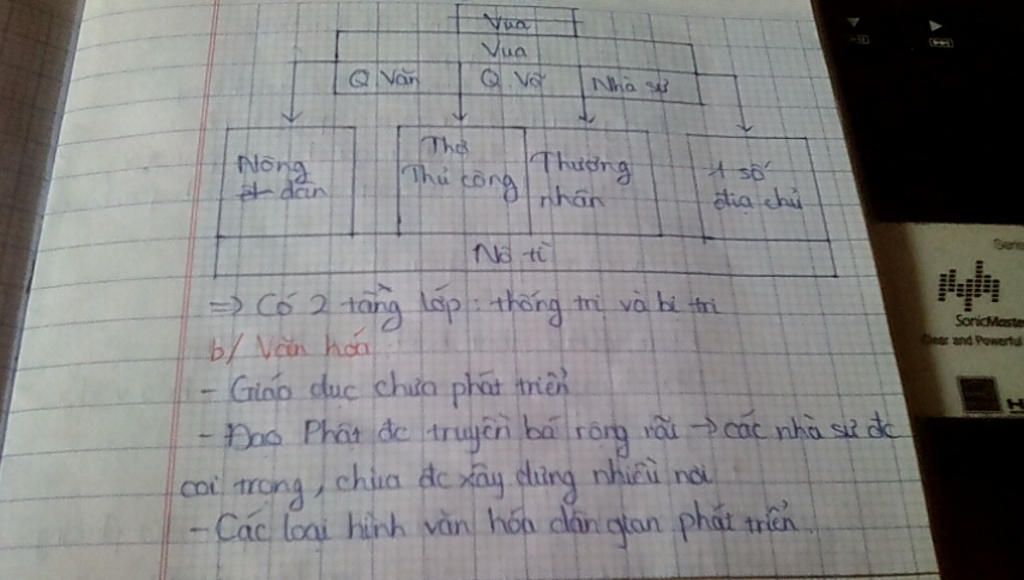 Vua
Vua
Q. Văn Q. Võ Nhà sư
Nông dân
Thợ Thủ công
Thương nhân
1 số địa chủ
Nô tì
=> Có 2 tầng lớp: thống trị và bị trị
b/ Văn hóa
- Giáo dục chưa phát triển
- Đạo Phật đc truyền bá rộng rãi → các nhà sư đc
coi trọng, chùa đc xây dựng nhiều nơi
- Các loại hình văn hóa dân gian phát triển.
SonicMaste
Clear and Powerful
H